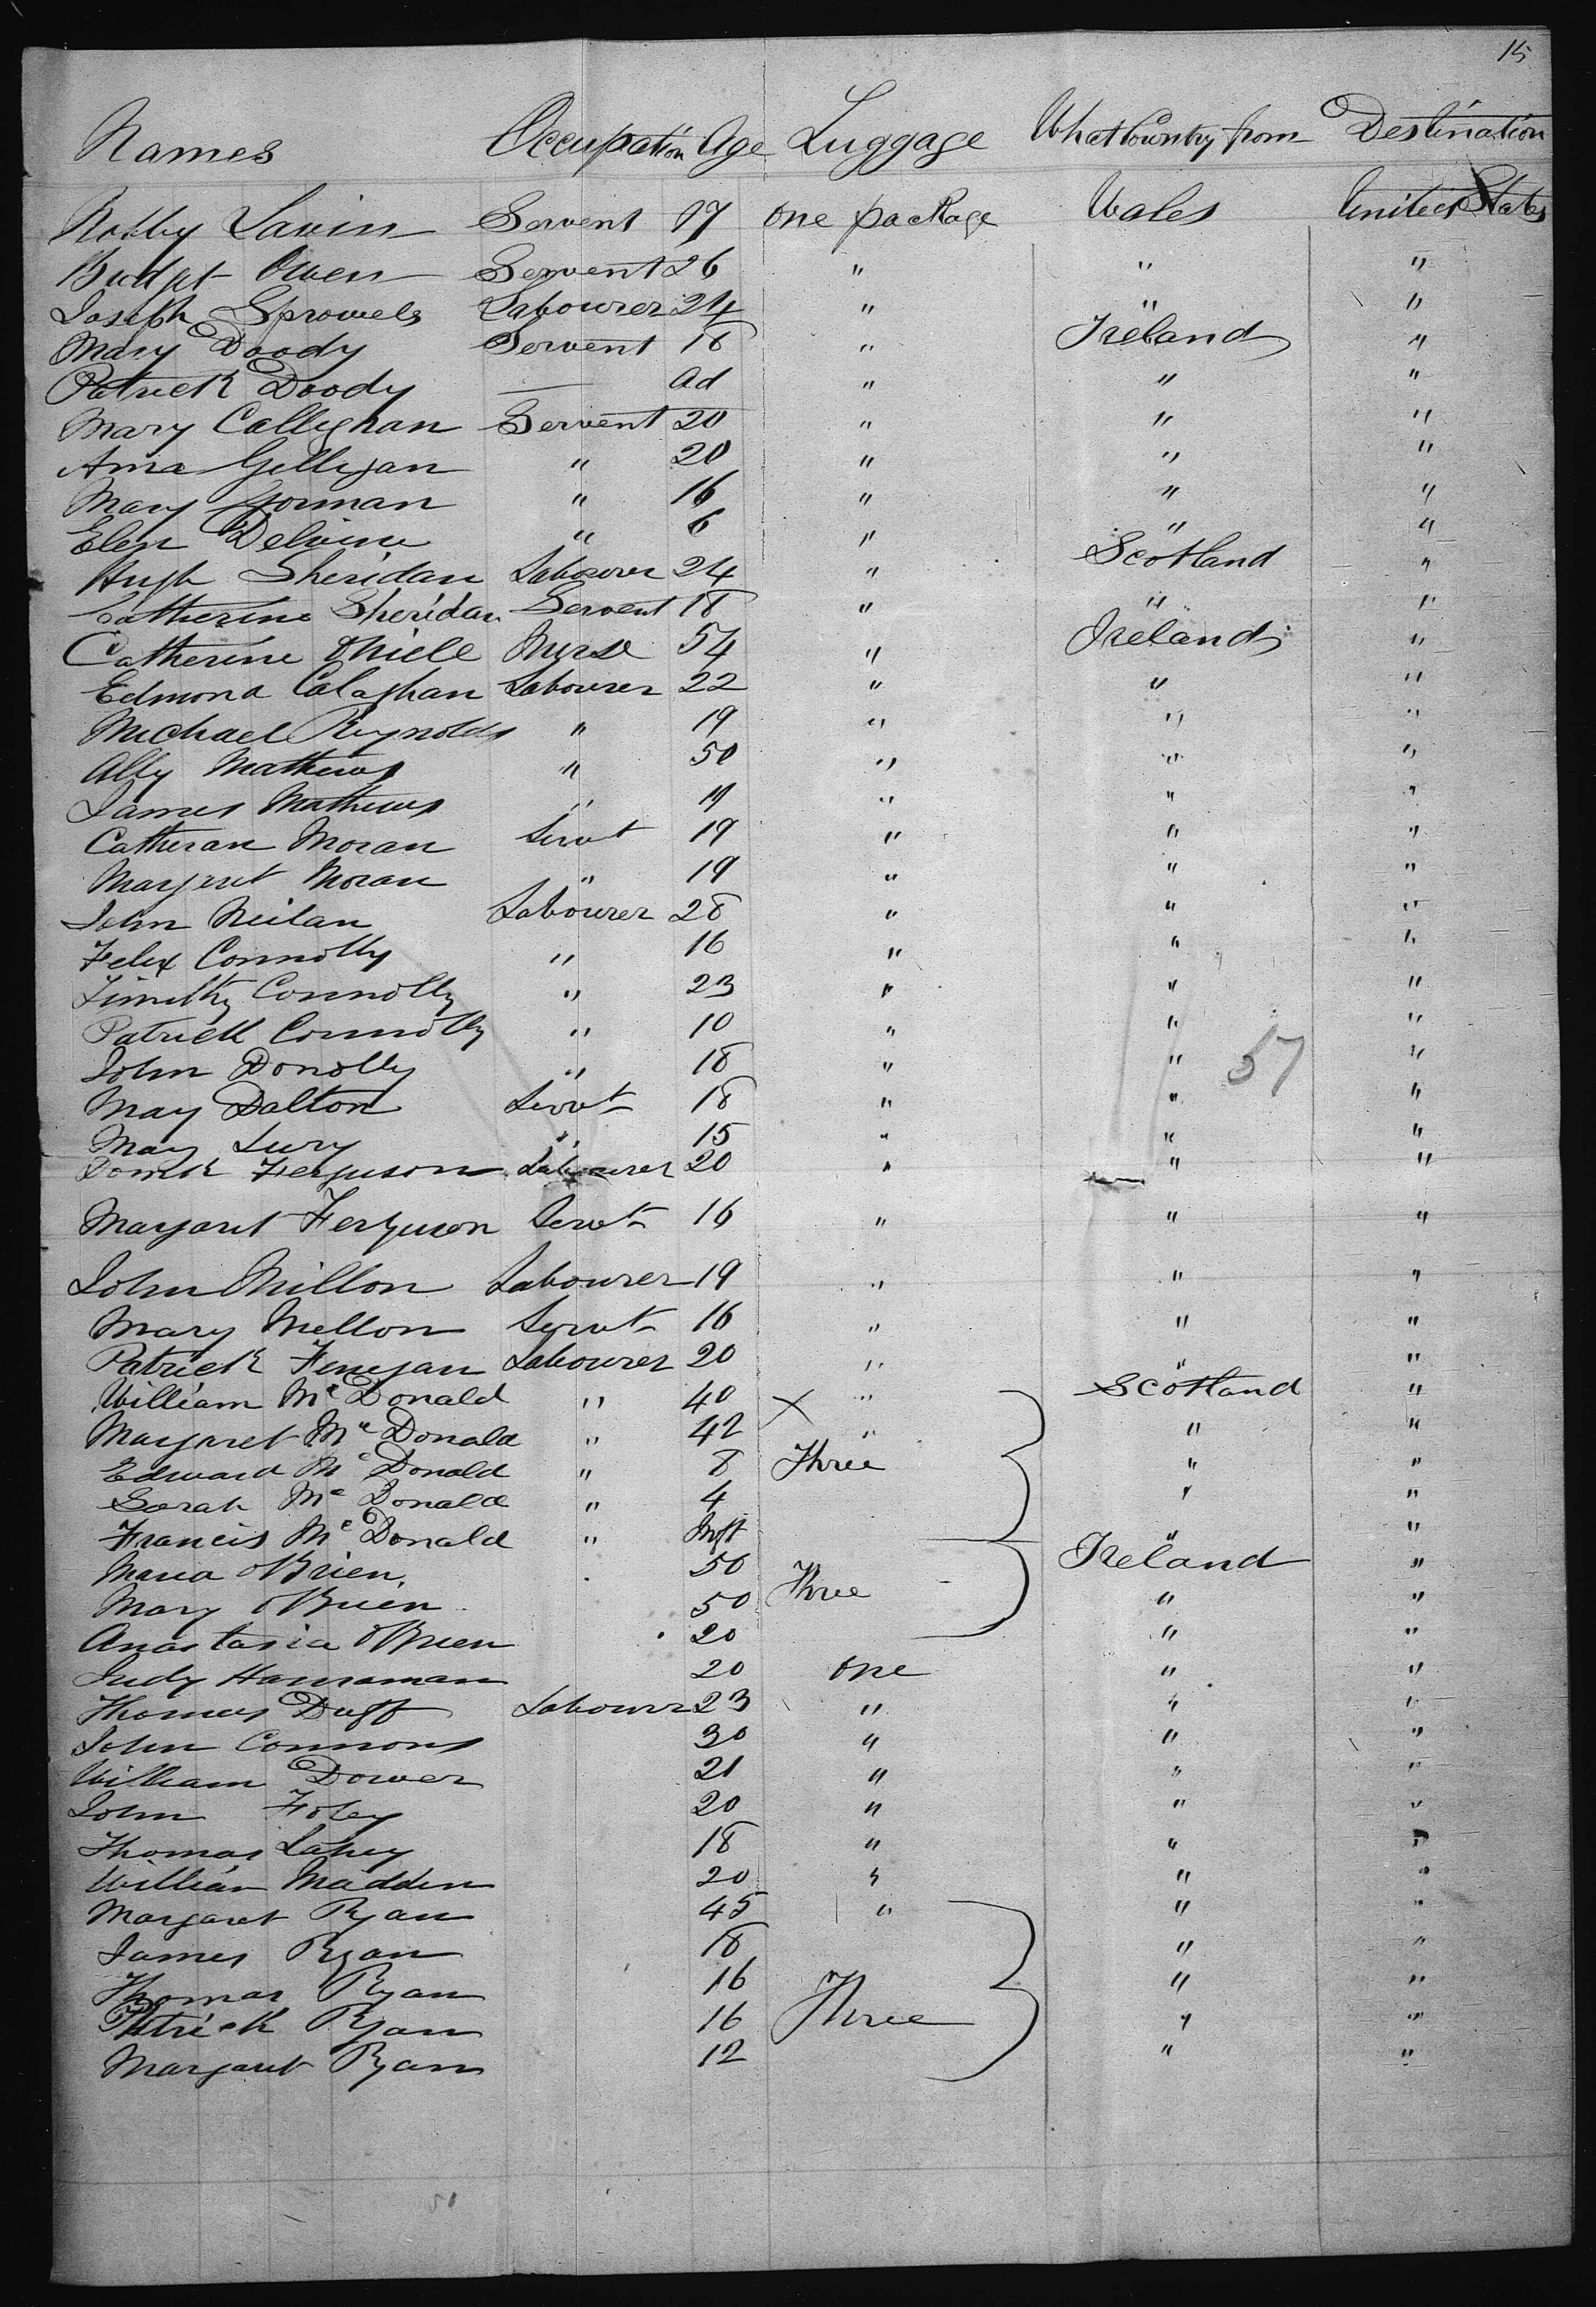 15
Names Occupation Age Luggage What Country from Destination
Lavin Servent 17 one package Wales United States
Owen Servent 26 " " "
Joseph Sprowels Labourer 24 " " "
Mary Doody Servent 18 " Ireland "
Patrick Doody — ad " " "
Mary Calleghan Servent 20 " " "
Anna Gelligan " 20 " " "
Mary Gorman " 16 " " "
Elen Delvine " 6 " " "
Hugh Sheridan Labourer 24 " Scotland "
Catherine Sheridan Servent 18 " " "
Catherine Nurse 54 " Ireland "
Edmond Calaghan Labourer 22 " " "
Michael Reynolds " 19 " " "
Ally Mathews " 50 " " "
James Mathews " 19 " " "
Catheran Moran Servt 19 " " "
Margaret Moran " 19 " " "
John Neilan Labourer 28 " " "
Felix Connolly " 16 " " "
Timithy Connolly " 23 " " "
Patrick Connolly " 10 " " "
John Donolly " 18 " " 57 "
May Dalton Servt 18 " " "
May Lury " 15 " " "
Domk Ferguson Labourer 20 " " "
Margaret Ferguson Servt 16 " " "
John Millon Labourer 19 " " "
Mary Mellon Servt 16 " " "
Patrick Fenegan Labourer 20 " " "
William Mc Donald " 40 X " Scotland "
Margaret Mc Donald " 42 " " "
Edward Mc Donald " 8 Three " "
Sarah Mc Donald " 4 " "
Francis Mc Donald " Inft " "
Maria OBrien. 50 Three Ireland "
Mary OBrien 50 " "
Anastasia OBrien 20 " "
Judy Hanraman 20 one " "
Thomas Duff Labourr 23 " " "
John Connors 30 " " "
William Dower 21 " " "
John Foley 20 " " "
Thomas Lahey 18 " " "
William Madden 20 " " "
Margaret Ryan 45 " " "
James Ryan 18 " "
Thomas Ryan 16 " "
Patrick Ryan 16 Three " "
Margaret Ryan 12 " "